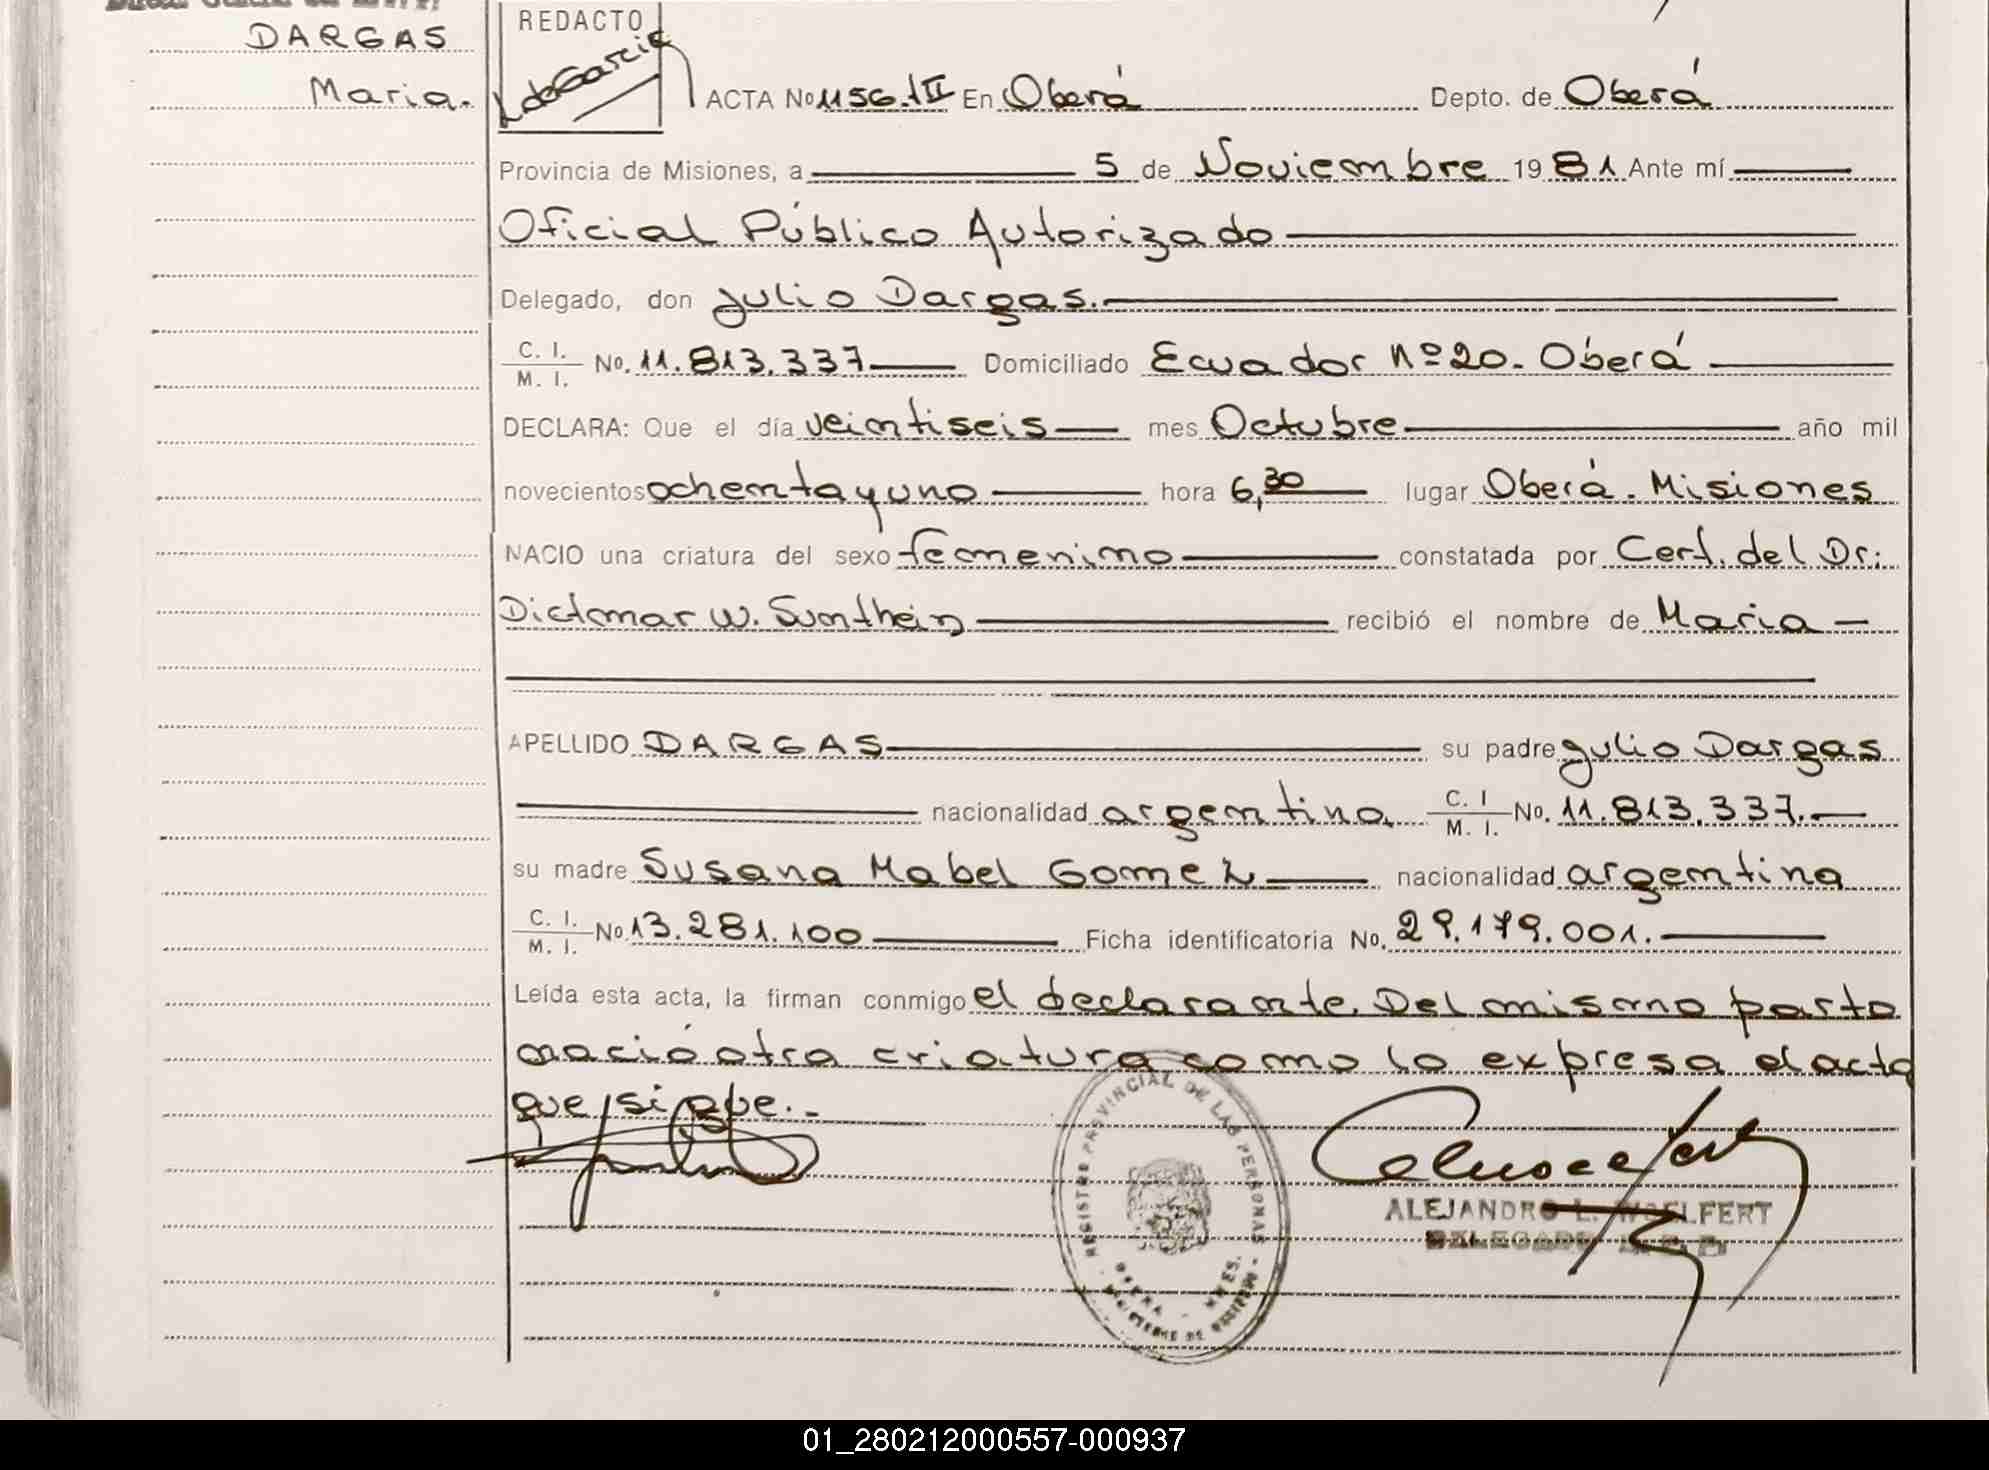 DARGAS
Maria.
REDACTO
L de Garcia
ACTA No 1156.III En Oberá Depto. de Oberá
Provincia de Misiones, a 5 de Noviembre 1981 Ante mí
Oficial Público Autorizado
Delegado, don Julio Dargas.
C. I. / M. I. No. 11.813.337 Domiciliado Ecuador Nº 20. Oberá
DECLARA: Que el día veintiseis mes Octubre año mil
novecientos ochenta y uno hora 6,30 lugar Oberá. Misiones
NACIO una criatura del sexo femenino constatada por Cert. del Dr:
Dietmar W. Sunthein recibió el nombre de Maria
APELLIDO DARGAS su padre Julio Dargas
nacionalidad argentina C. I / M. I. No. 11.813.337.
su madre Susana Mabel Gomez nacionalidad argentina
C. I. / M. I. No 13.281.100 Ficha identificatoria No. 29.179.001.
Leída esta acta, la firman conmigo el declarante. Del mismo parto
nació otra criatura como lo expresa el acta
que sigue.-
REGISTRO PROVINCIAL DE LAS PERSONAS
OBERA - MNES.
ALEJANDRO L. WOELFERT
DELEGADO
01_280212000557-000937